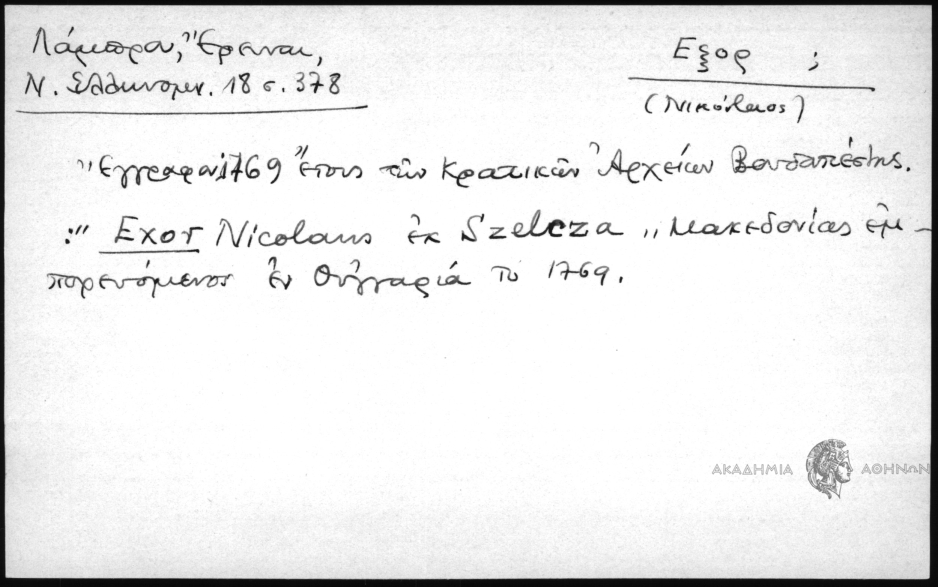 Λάμπρου, Ἔρευναι,
Ν. Ἑλληνομν. 18 σ. 378
Εξορ ;
(Νικόλαος)
Ἔγγραφον 1769 ἔτους τῶν Κρατικῶν Ἀρχείων Βουδαπέστης.
:" Exor Nicolaus ἐκ Szelcza "Μακεδονίας ἐμ-
πορευόμενος ἐν Οὐγγαρίᾳ τὸ 1769.
ΑΚΑΔΗΜΙΑ ΑΘΗΝΩΝ